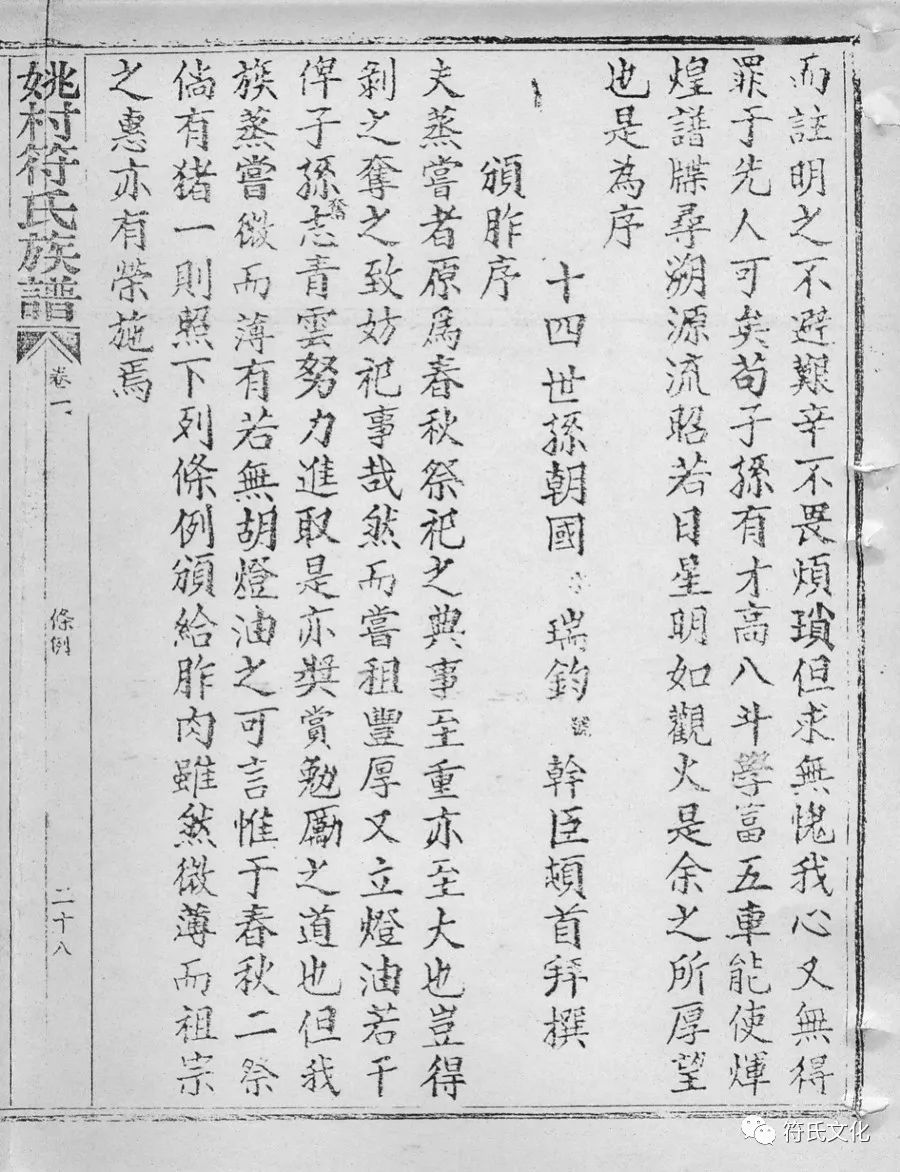 而註明之不避艱辛不畏煩瑣但求無愧我心又無得
罪于先人可矣苟子孫有才高八斗學富五車能使輝
煌譜牒尋朔源流昭若日星明如觀火是余之所厚望
也是為序
十四世孫朝國字瑞鈞號幹臣頓首拜撰
頒胙序
夫蒸嘗者原爲春秋祭祀之典事至重亦至大也豈得
剝之奪之致妨祀事哉然而嘗租豐厚又立燈油若干
俾子孫奮志青雲努力進取是亦獎賞勉勵之道也但我
族蒸嘗微而薄有若無胡燈油之可言惟于春秋二祭
倘有猪一則照下列條例頒給胙肉雖然微薄而祖宗
之惠亦有榮施焉
姚村符氏族譜 卷一 條例 二十八
符氏文化